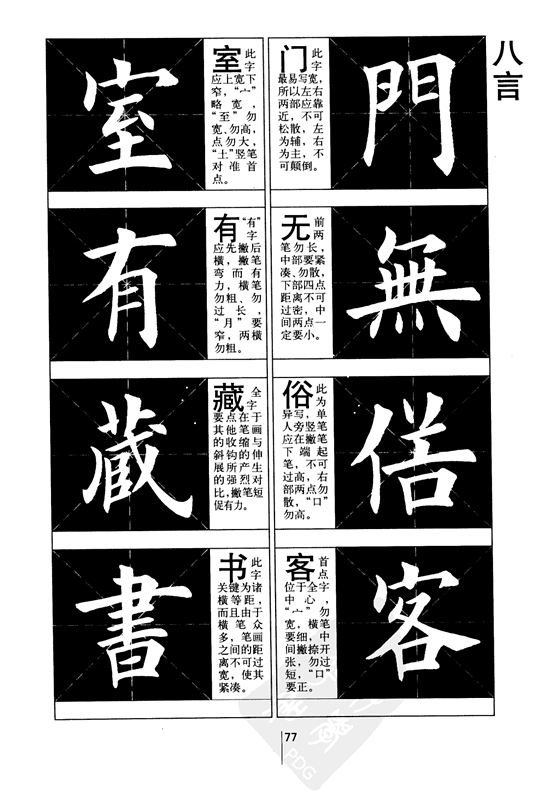 八言
門
门此字
最易写宽，
所以左右
两部应靠
近，不可
松散，左
为辅，右
为主，不
可颠倒。
無
无前两
笔勿长，
中部要紧
凑、勿散，
下部四点
距离不可
过密，中
间两点一
定要小。
俗
俗此为
异写，单
人旁竖笔
应在撇笔
下端起
笔，不可
过高，右
部两点勿
散，“口”
勿高。
客
客首点
位于全字
中心，
“宀”勿
宽，横笔
要细，中
间撇捺开
张，勿过
短，“口”
要正。
室
室此字
应上宽下
窄，“宀”
略宽，
“至”勿
宽、勿高，
点勿大，
“土”竖笔
对准首
点。
有
有“有”字
应先撇后
横，撇笔
弯而有
力，横笔
勿粗、勿
过长，
“月”要
窄，两横
勿粗。
藏
藏全字
要点在于
其他笔画
的收缩与
斜钩的伸
展所产生
的强烈对
比，撇笔短
促有力。
書
书此字
关键为诸
横等距，
而且由于
横笔众
多，笔画
之间的距
离不可过
宽，使其
紧凑。
77
PDG